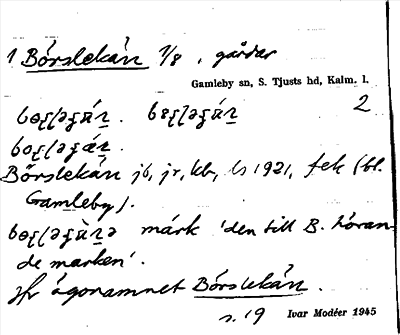 1 Börslekån 1/8, gårdar
Gamleby sn, S. Tjusts hd, Kalm. l.
2
Börslekån jb, jr, kb, ls 1921, fek (bl.
Gamleby).
märk 'den till B. höran-
de marken'.
Jfr ägonamnet Börslekån.
s. 19 Ivar Modéer 1945